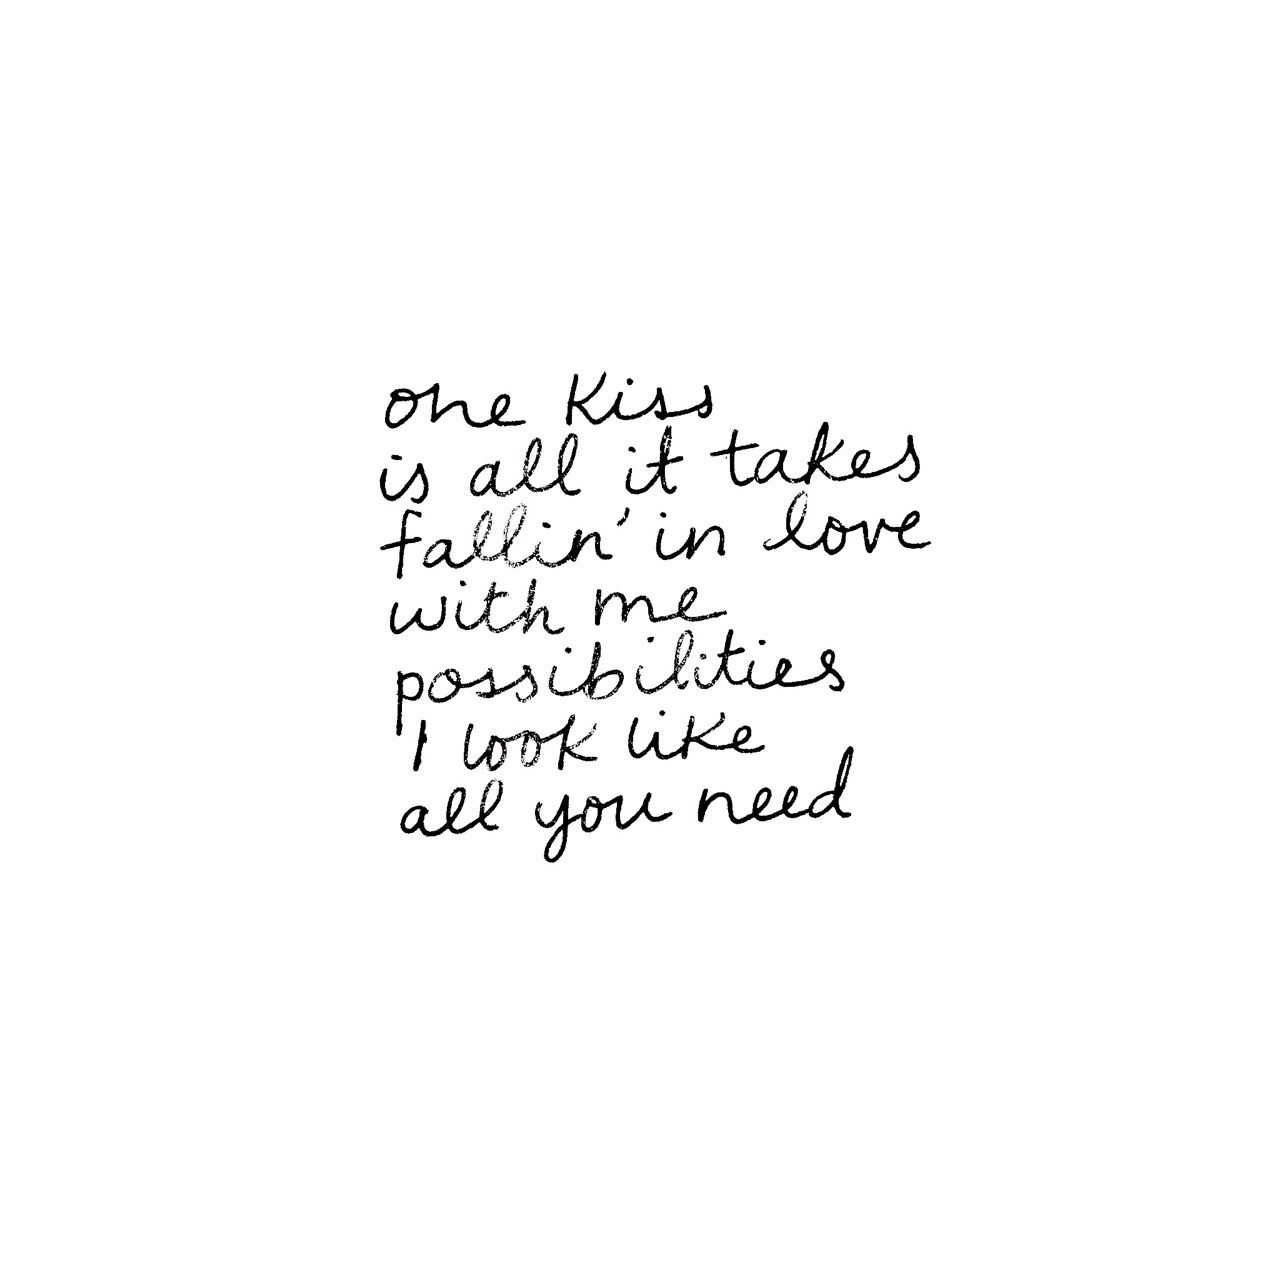 one kiss
is all it takes
fallin' in love
with me
possibilities
I look like
all you need